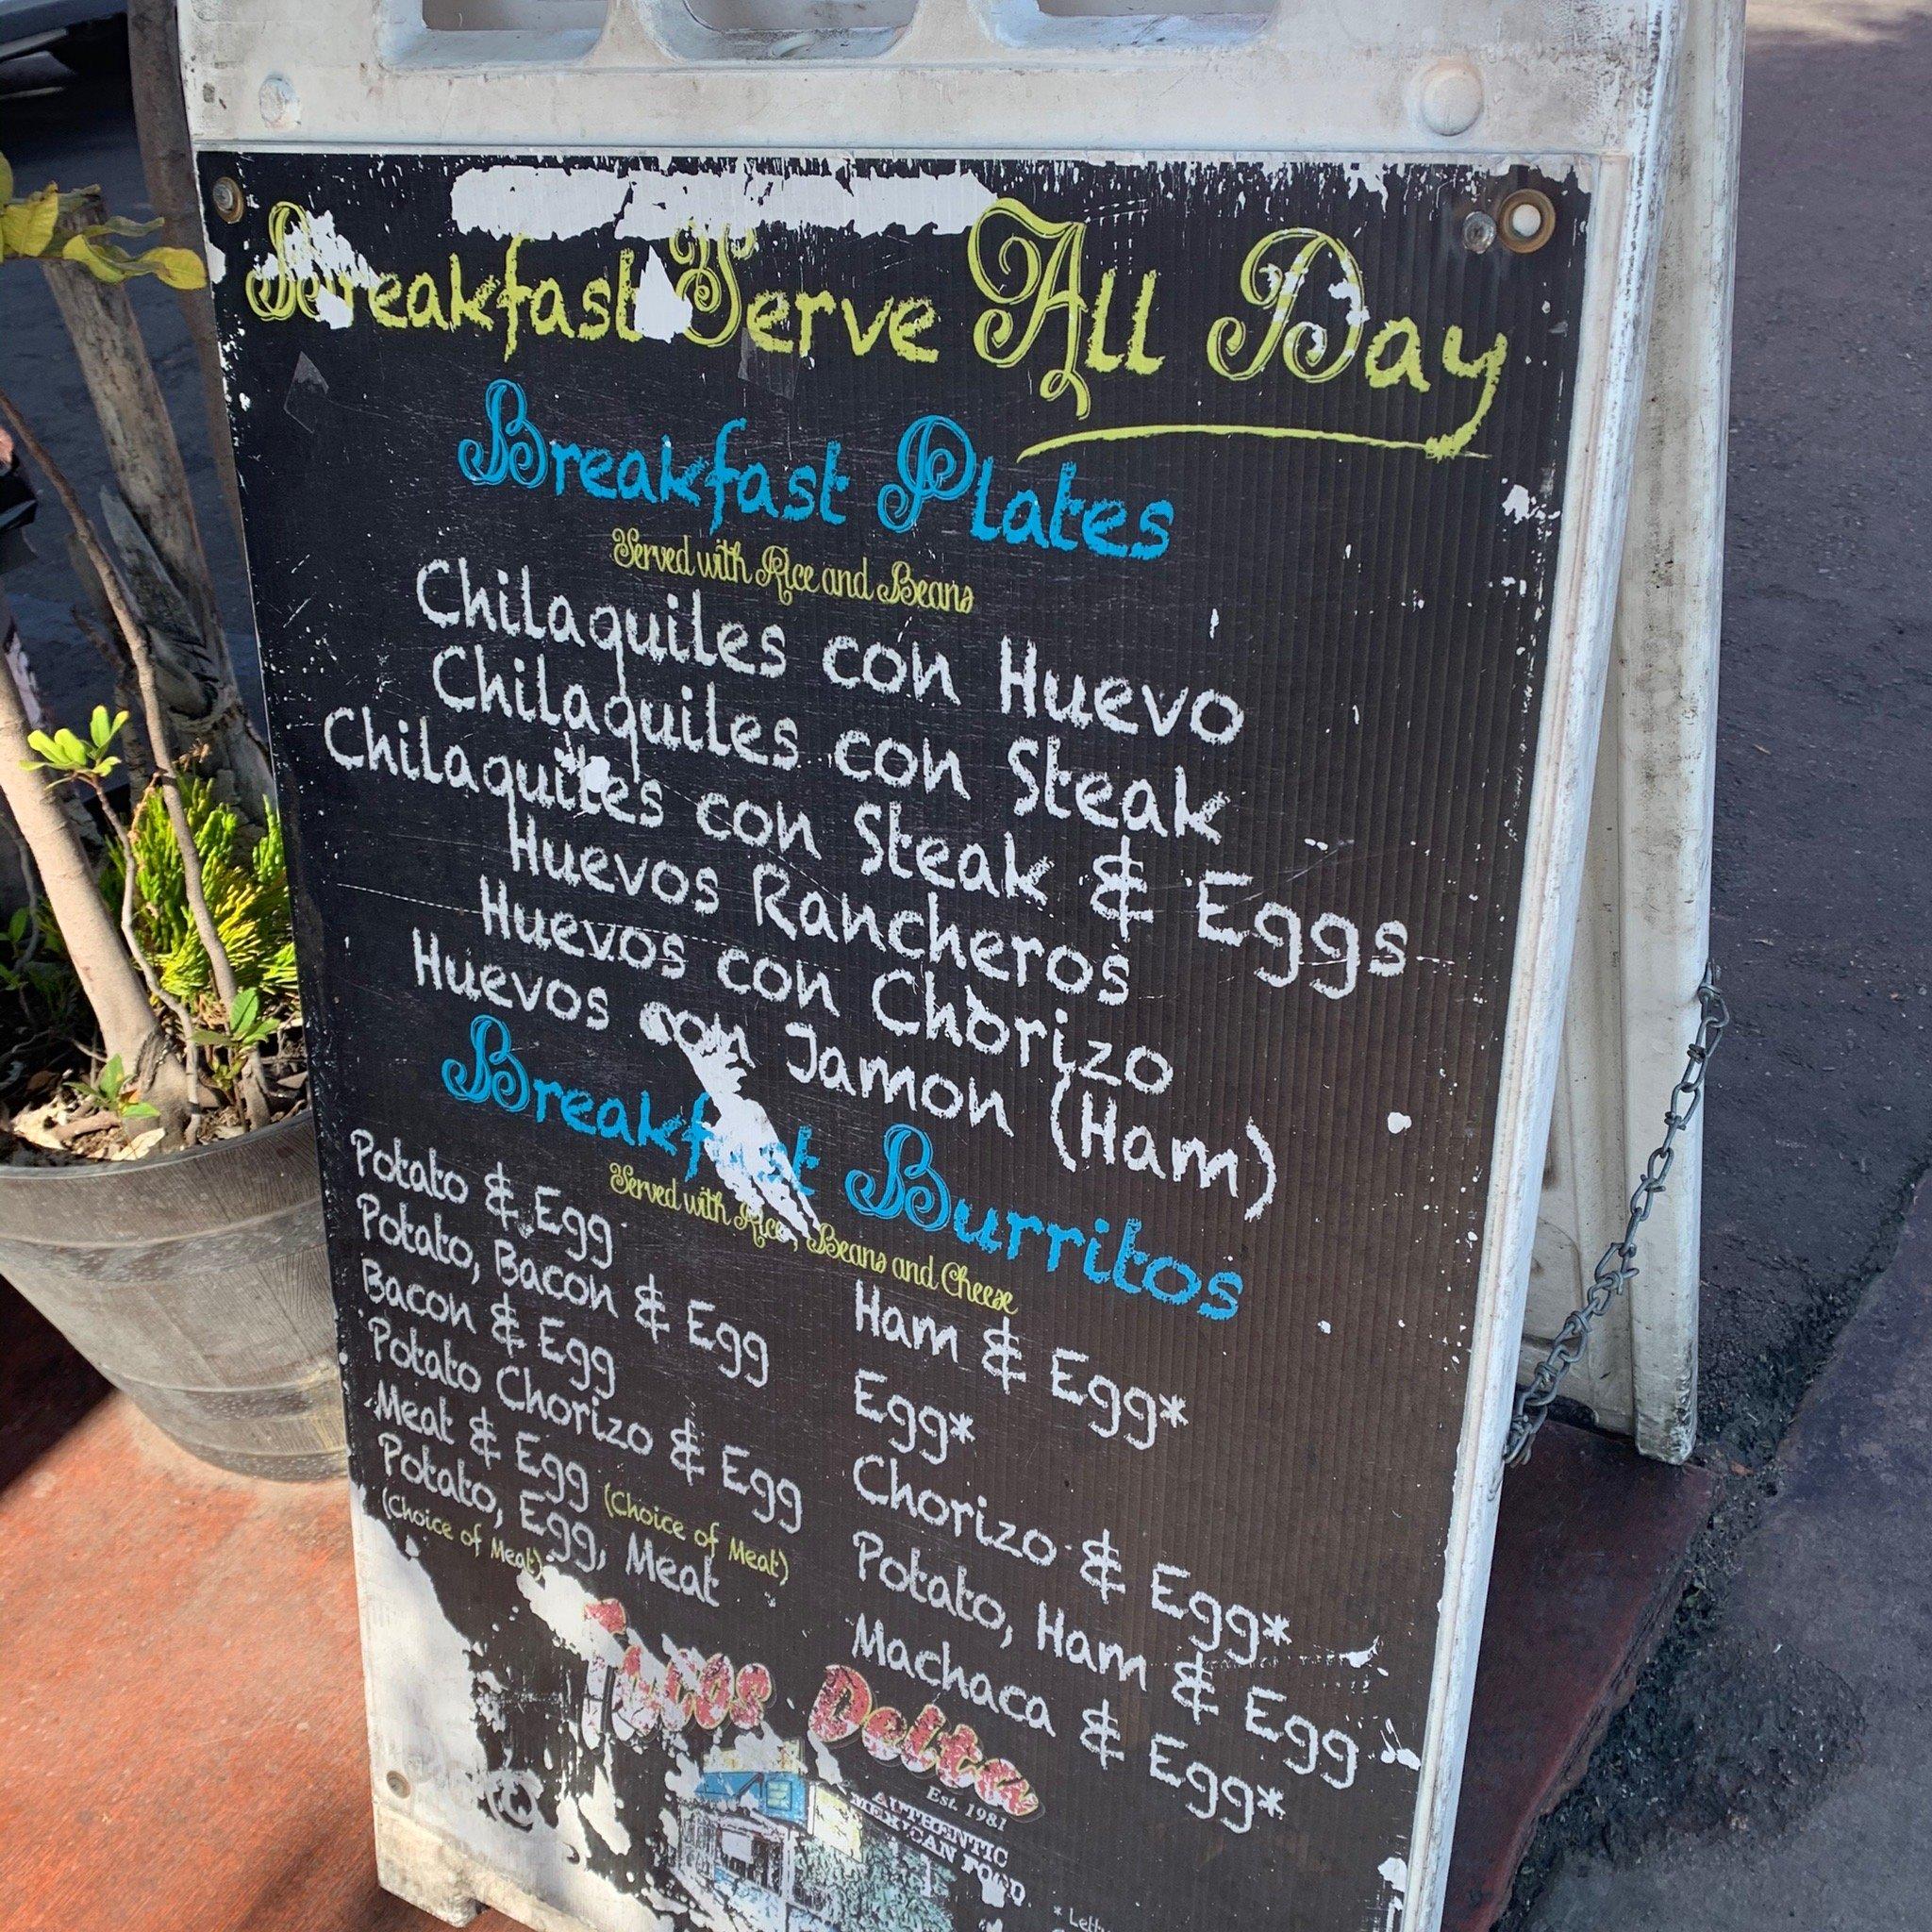 Breakfast Serve All Day
Breakfast Plates
Served with Rice and Beans
Chilaquiles con Huevo
Chilaquiles con Steak
Chilaquiles con Steak & Eggs
Huevos Rancheros
Huevos con Chorizo
Huevos con Jamon (Ham)
Breakfast Burritos
Served with Rice, Beans and Cheese
Potato & Egg
Potato, Bacon & Egg
Bacon & Egg
Potato Chorizo & Egg
Meat & Egg (Choice of Meat)
Potato, Egg, Meat
(Choice of Meat)
Ham & Egg*
Egg*
Chorizo & Egg*
Potato, Ham & Egg
Machaca & Egg*
Tacos Delta
Est. 1981
AUTHENTIC
MEXICAN FOOD